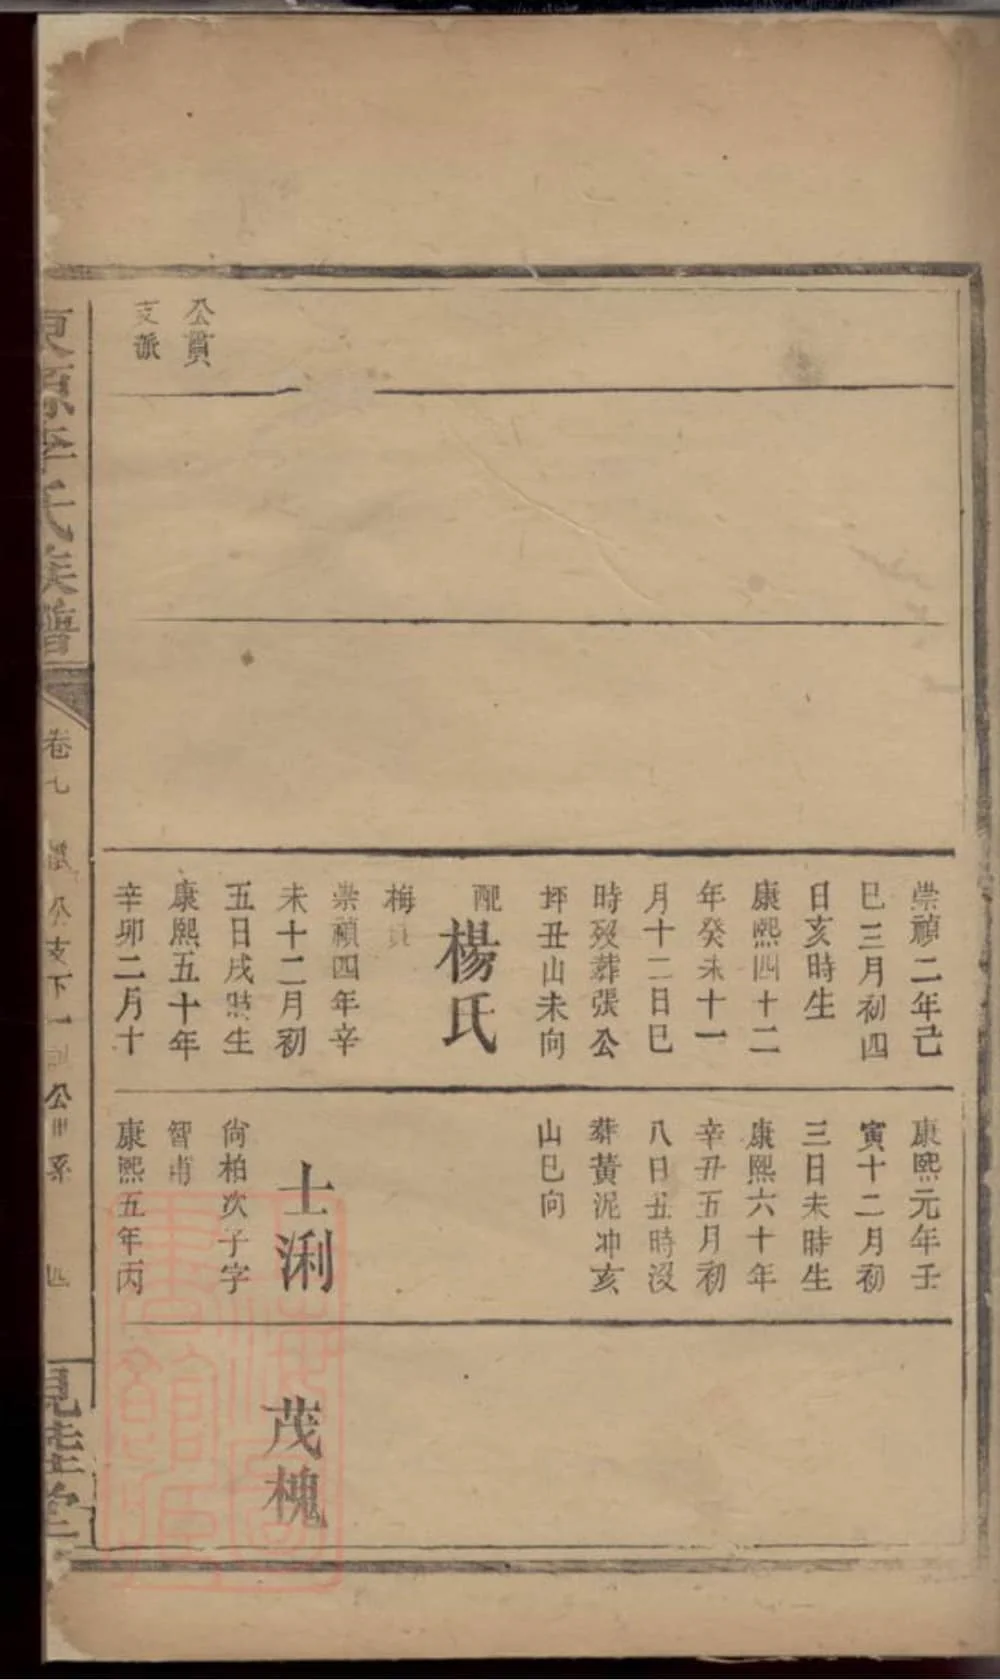 公貫
支派
崇禎二年己
巳三月初四
日亥時生
康熙四十二
年癸未十一
月十二日巳
時歿葬張公
坪丑山未向
配
楊氏
梅
崇禎四年辛
未十二月初
五日戌時生
康熙五十年
辛卯二月十
康熙元年壬
寅十二月初
三日未時生
康熙六十年
辛丑五月初
八日丑時沒
葬黃泥冲亥
山巳向
士浰
尙柏次子字
智甫
康熙五年丙
茂槐
東源李氏族譜
卷七
公支下
公
系
四